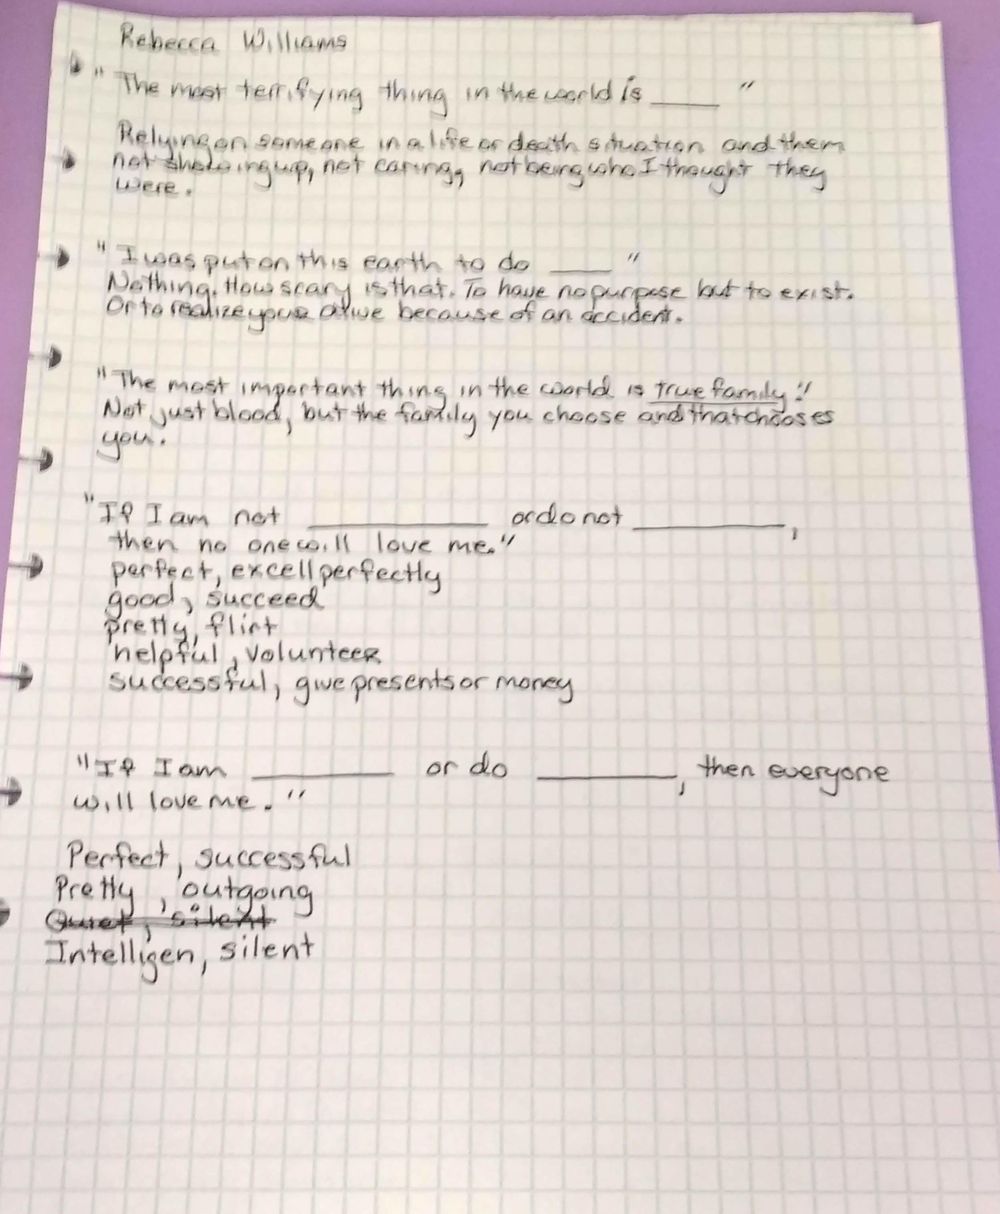 Rebecca Williams
"The most terrifying thing in the world is ____ "
Relying on someone in a life or death situation and them
not showing up, not caring, not being who I thought they
were.
"I was put on this earth to do ____ "
Nothing. How scary is that. To have no purpose but to exist.
Or to realize your alive because of an accident.
"The most important thing in the world is true family."
Not just blood, but the family you choose and that chooses
you.
"If I am not ____________ or do not __________,
then no one will love me."
perfect, excell perfectly
good, succeed
pretty, flirt
helpful, volunteer
successful, give presents or money
"If I am _________ or do _________, then everyone
will love me."
Perfect, successful
Pretty, outgoing
Quiet, silent
Intelligen, silent